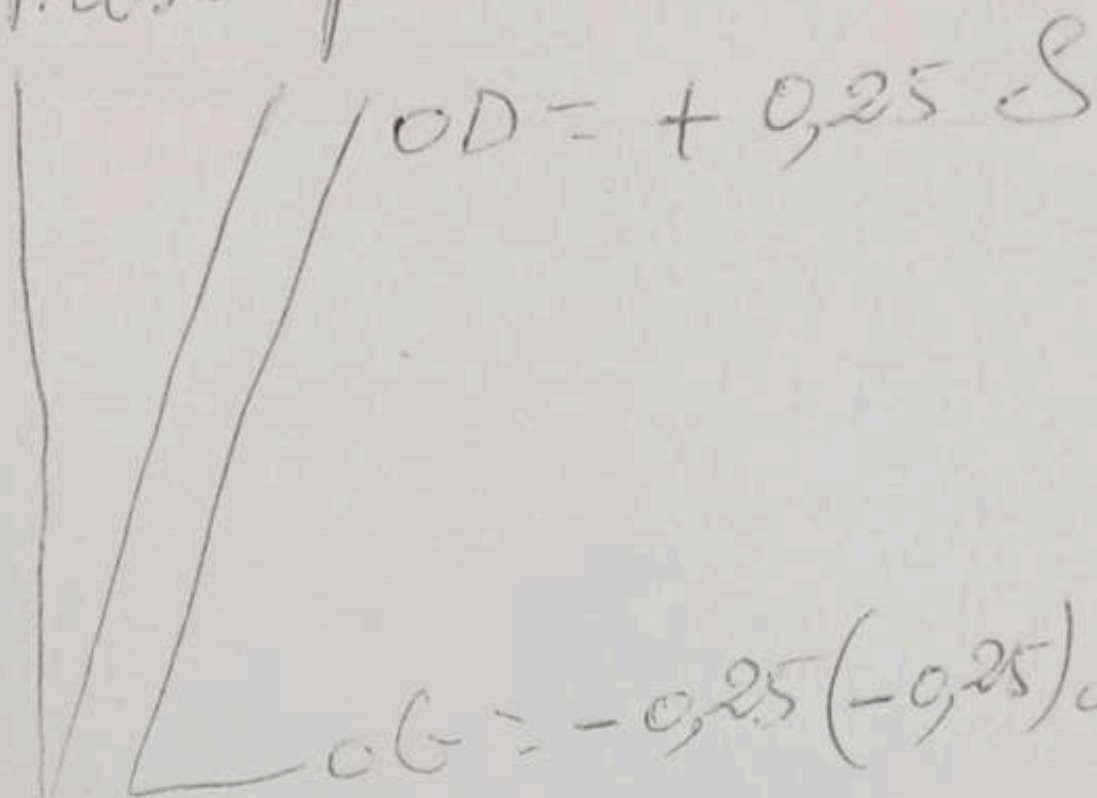 VL
OD = + 0,25 S
OG = -0,25 (-0,25)